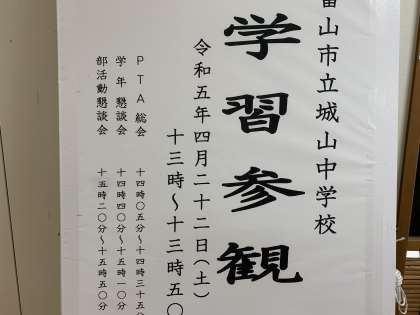 富山市立城山中学校
学習参観
令和五年四月二十二日（土）
十三時～十三時五〇
PTA総会 十四時〇五分～十四時三十五分
学年懇談会 十四時四〇分～十五時一〇分
部活動懇談会 十五時二〇分～十五時五〇分